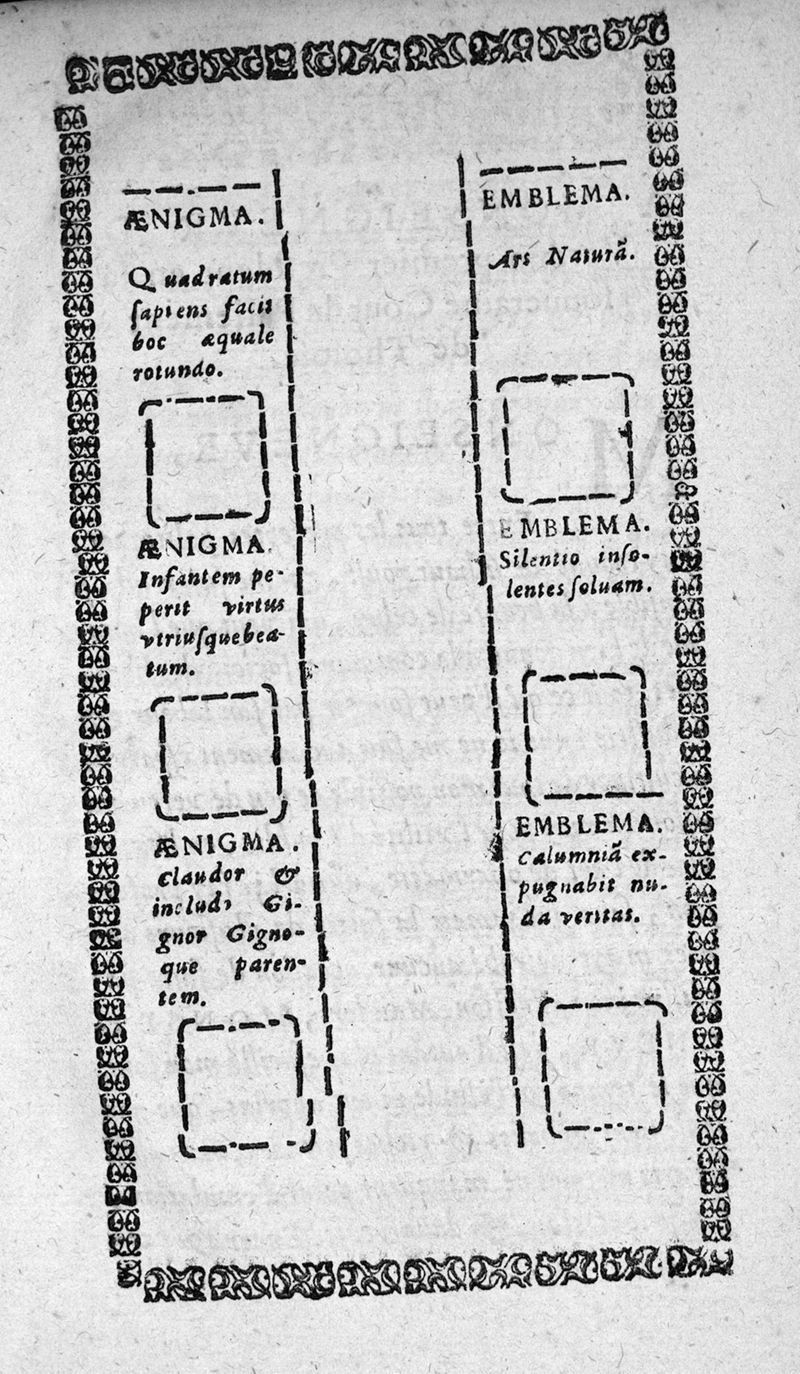 ÆNIGMA.
Quadratum
ſapiens facit
hoc æquale
rotundo.
ÆNIGMA.
Infantem pe-
perit virtus
vtriuſque bea-
tum.
ÆNIGMA.
Claudor &
includ
Gi-
gnor Gigno-
que paren-
tem.
EMBLEMA.
Ars Naturã.
EMBLEMA.
Silentio inſo-
lentes ſoluam.
EMBLEMA.
Calumniã ex-
pugnabit nu-
da veritas.